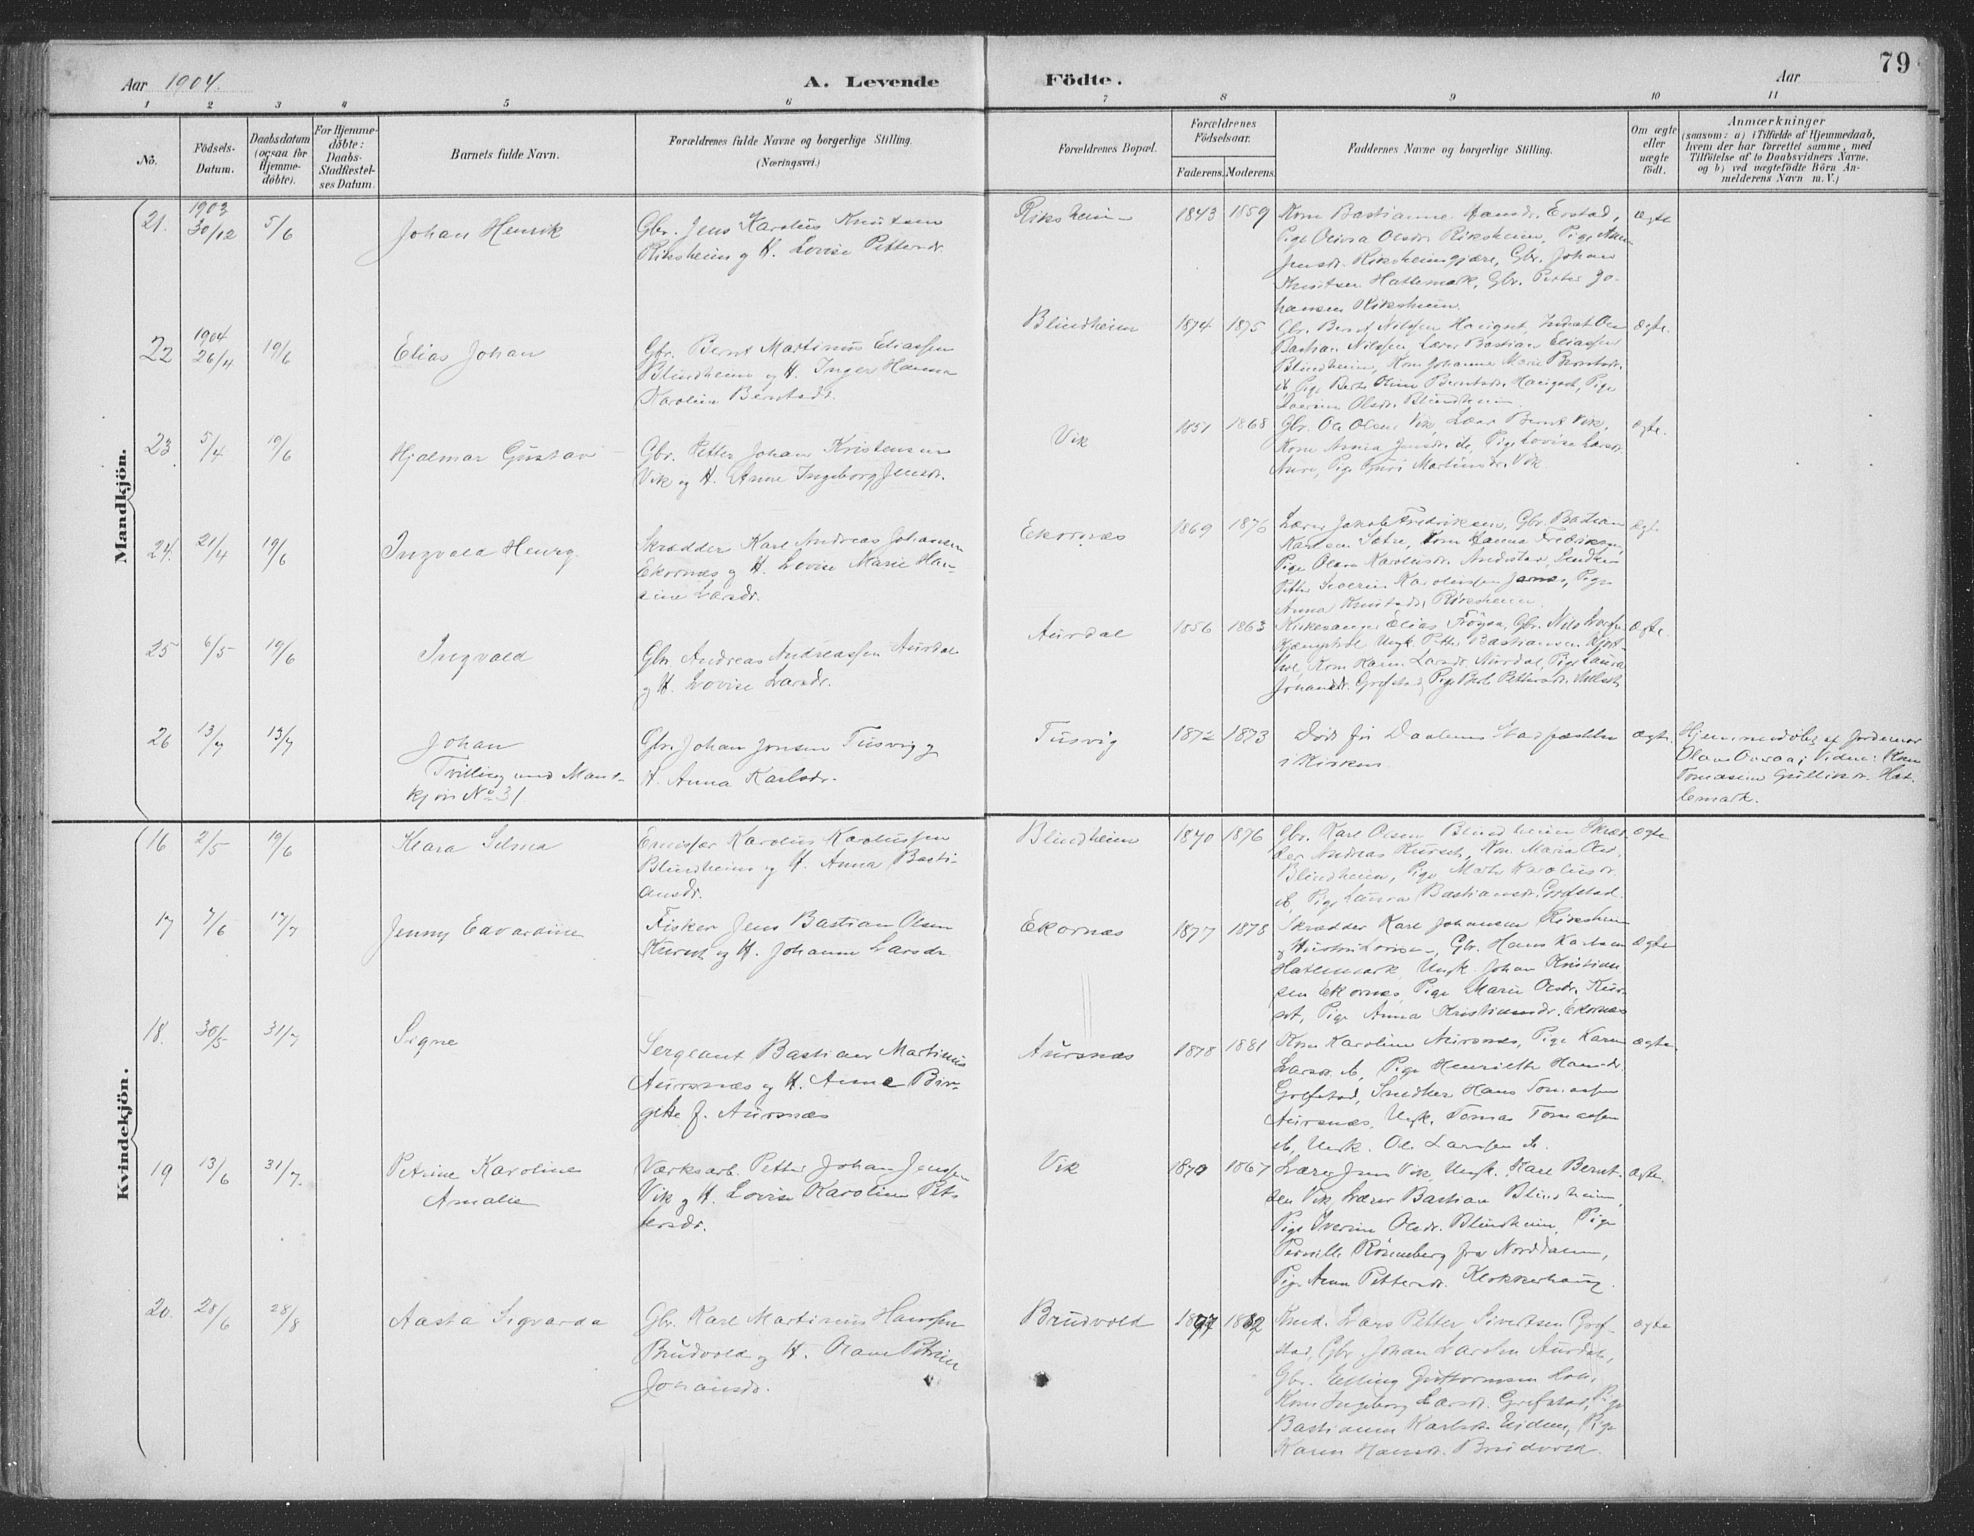 79
Aar 1904.
A. Levende Födte.
Aar
1 2 3 4 5 6 7 8 9 10 11
No.
Födsels-Datum.
Daabsdatum (ogsaa for Hjemmedøbte).
For Hjemmedøbte: Daabs-Stadfæstelses Datum.
Barnets fulde Navn.
Forældrenes fulde Navne og borgerlige Stilling.
(Næringsvei.)
Forældrenes Bopæl.
Forældrenes Födselsaar.
Faderens. Moderens.
Faddernes Navne og borgerlige Stilling.
Om ægte eller uægte födt.
Anmærkninger
(saasom: a) i Tilfælde af Hjemmedaab,
hvem der har forrettet samme, med
Tilföielse af to Daabsvidners Navne.
og b) ved uægtefödte Börn An-
melderens Navn m. V.)
Mandkjön.
21. 1903 30/12 5/6 Johan Henrik
Gbr. Jens Karolus Knutsen
Riksheim og H. Lovise Pettersdr.
Riksheim 1843 1859
Kom Bastianne Hansdr. Erstad,
Pige Olivia Olsdr. Riksheim, Pige
Jensdr. Riksheimgjære, Gbr. Johan
Knutsen Hattemark, Gbr. Petter Jo-
hansen Riksheim
ægte
22 1904 26/4 19/6 Elias Johan
Gbr. Bernt Martinus Eliassen
Blindheim og H. Inger Hanna
Karolin Berntsdr.
Blindheim 1874 1875
Gbr. Bernt Nilssen
Bastian Nilssen, Lærer Bastian Eliassen
Blindheim, Kom Johanne Marie Berntsdr.
Olsdr. Blindheim
ægte.
23. 5/4 19/6 Hjalmar Gustav
Gbr. Petter Johan Kristensen
Vik og H. Anne Ingeborg Jensdr.
Vik 1851 1868
Gbr. Ole Olsen Vik, Lærer Bernt Vik,
Kom Anna Jensdr. do, Pige Lovise Larsdr.
Aure, Pige Guri Martinusdr. Vik
ægte.
24. 21/4 19/6 Ingvald Henry
Skrædder Karl Andreas Johansen
Ekornæs og H. Lovise Marie Han-
sine Larsdr.
Ekornæs 1869 1876
Lærer Jakob Fredriksen, Gbr. Bastian
Karlsen Sætre, Kom Hanna Fredriksen,
Pige Olava Karolusdr.
Petter Severin Karolussen Jarnes, Pige
Anna Knutsdr. Riksheim.
ægte
25 6/5 19/6 Ingvald
Gbr. Andreas Andreassen Aurdal
og H. Lovise Larsdr.
Aurdal 1856 1863
Kirkesanger Elias Tøgsa, Gbr. Nils
Ungk. Petter Bastiansen
Kom Karen Larsdr. Aurdal, Pige Laura
Johansdr. Grefstad, Pige Berte Pettersdr.
ægte.
26 13/7 13/7 Johan
Tvilling med Mand-
kjøn No 31
Gbr. Johan Jonsen Tusvig og
H. Anna Karlsdr.
Tusvig 1872 1873
Død før Daabens Stadfæstelse
i Kirken
ægte.
Hjemmedøbt af Jordemor
Olave Aursaa; Vidne: Kom
Tomasine Gulliksdr. Hat-
lemark.
Kvindekjön.
16 2/5 19/6 Klara Selma
Emissær Karolus Karolussen
Blindheim og H. Anna Basti-
ansdr.
Blindheim 1870 1876
Gbr. Karl Olsen Blindheim Skræd-
der Andreas Kurset, Kom Maria Olsd.
Blindheim, Pige Marte Karolusdr.
do, Pige Laura Bastiansdr. Grefstad.
ægte
17 7/6 17/7 Jenny Edvardine
Fisker Jens Bastian Olsen
Kurset og H. Johanne Larsdr.
Ekornæs 1877 1878
Skrædder Karl Johansen Riksheim
og Hustru Lovise, Gbr. Hans Karlsen
Hatlemark, Ungk. Johan Kristian-
sen Ekornæs, Pige Marie Olsdr. Kur-
set, Pige Anna Kristiansdr. Ekornæs
ægte
18. 30/5 31/7 Signe
Sergeant Bastian Martinus
Aursnæs og H. Anne Bir-
gitte f. Aursnæs
Aursnæs 1878 1881
Kom Karoline Aursnæs, Pige Karen
Larsdr. do, Pige Henriette Hansdr.
Grefstad, Snedker Hans Tomassen
Aursnæs, Ungk. Tomas Tomassen
do, Ungk. Ole Larssen do.
ægte.
19 13/6 31/7. Petrine Karoline
Amalie
Værksarb. Petter Johan Jenssen
Vik og H. Lovise Karoline Pet-
tersdr.
Vik 1870 1867
Lærer Jens Vik, Ungk. Karl Bernt-
sen Vik, Lærer Bastian Blindheim,
Pige Iverine Olsdr. Blindheim, Pige
Pernille Rønneberg fra Norddalen,
Pige Anna Pettersdr. Klokkerhaug.
ægte.
20. 28/6 28/8 Aasta Sigvarda
Gbr. Karl Martinus Hanssen
Brudvold og H. Olave Petrine
Johansdr.
Brudvold 1877 1882
Lars Petter Sivertsen Gref-
stad, Gbr. Johan Larsen Aurdal,
Gbr. Elling Guttormsen
Kom Ingeborg Larsdr. Grefstad, Pige
Bastianne Karlsdr. Eidem, Pige
Karen Hansdr. Brudvold.
ægte